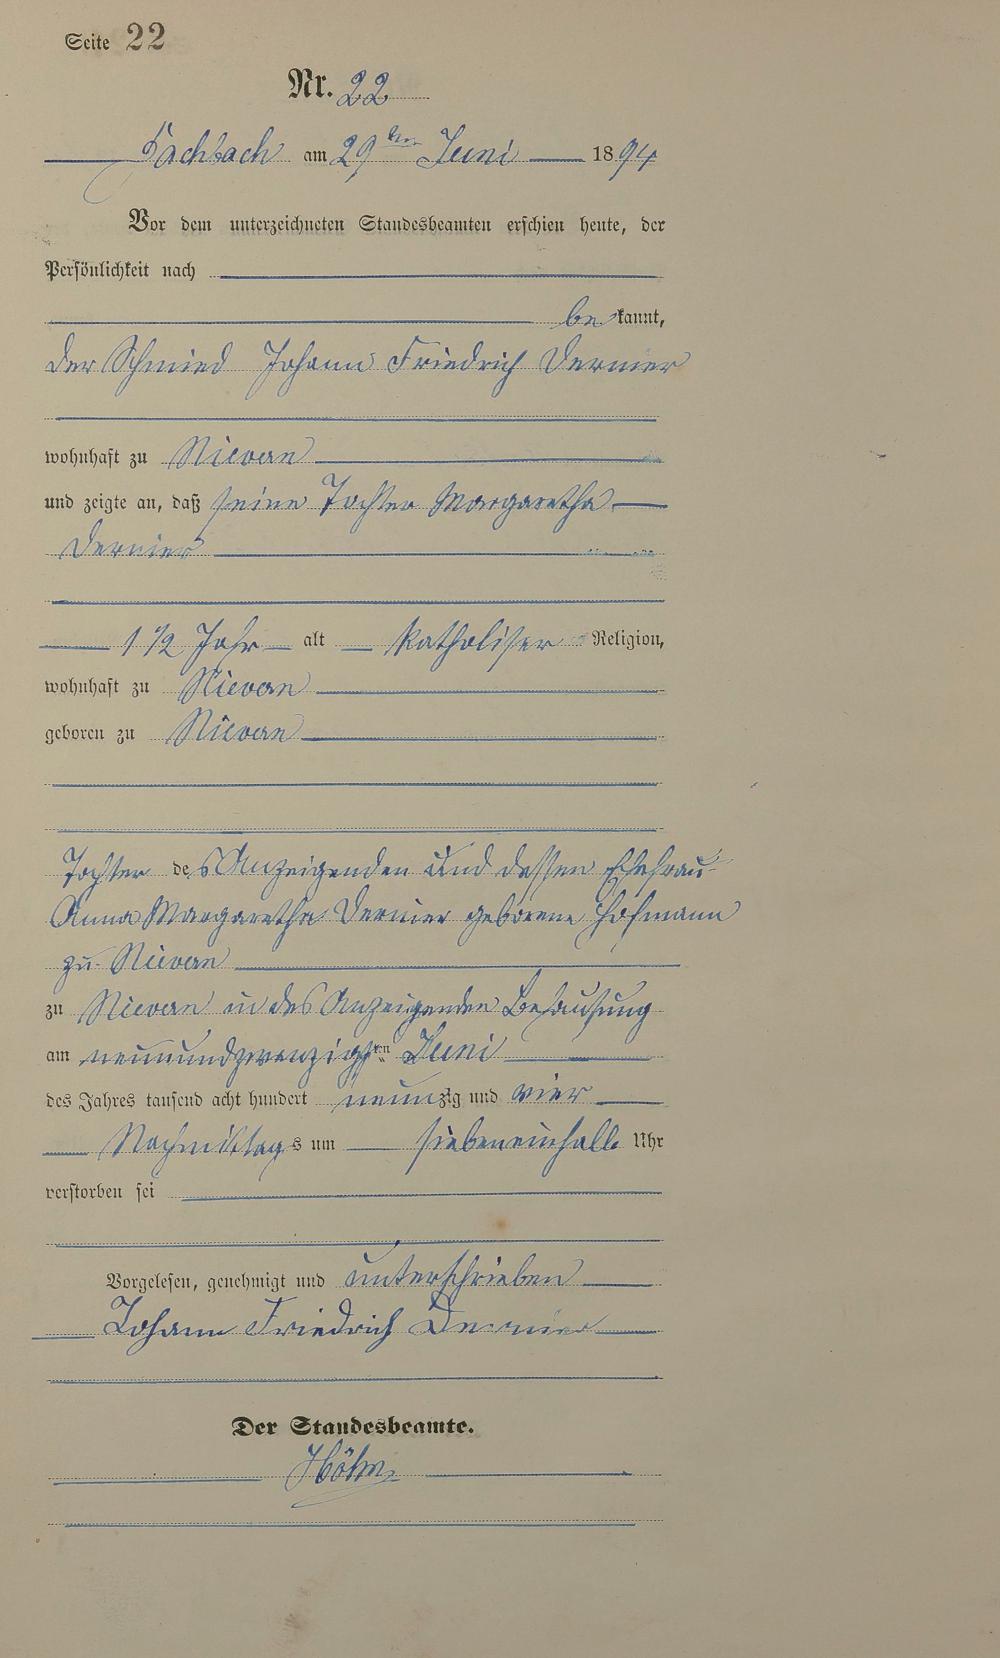 Seite 22
Nr. 22
Fachbach am 29ten Juni 1894
Vor dem unterzeichneten Standesbeamten erschien heute, der
Persönlichkeit nach
be kannt,
der Schmied Johann Friedrich Dernier
wohnhaft zu Nievern
und zeigte an, daß seine Tochter Margaretha
Dernier
1 1/2 Jahr alt katholiser Religion,
wohnhaft zu Nievern
geboren zu Nievern
Tochter des Anzeigenden und dessen Ehefrau
Anna Margaretha Dernier geborene Hofmann
zu Nievern
zu Nievern in des Anzeigenden Behausung
am neunundzwanzigsten Juni
des Jahres tausend acht hundert neunzig und vier
Nachmittags um siebeneinhalb Uhr
verstorben sei
Vorgelesen, genehmigt und unterschrieben
Johann Friedrich Dernier
Der Standesbeamte.